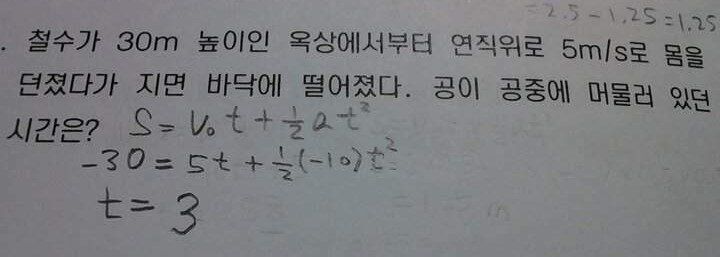 = 2.5 - 1.25 = 1.25
. 철수가 30m 높이인 옥상에서부터 연직위로 5m/s로 몸을
던졌다가 지면 바닥에 떨어졌다. 공이 공중에 머물러 있던
시간은? S = V₀t + ½at²
-30 = 5t + ½(-10)t²
t = 3